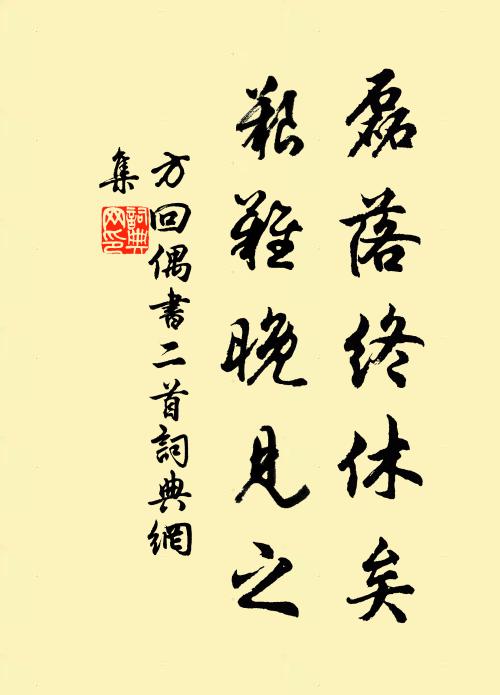 磊落終休矣
艱難晚見之
方回偶書二首詞典網
集
詞典
网印